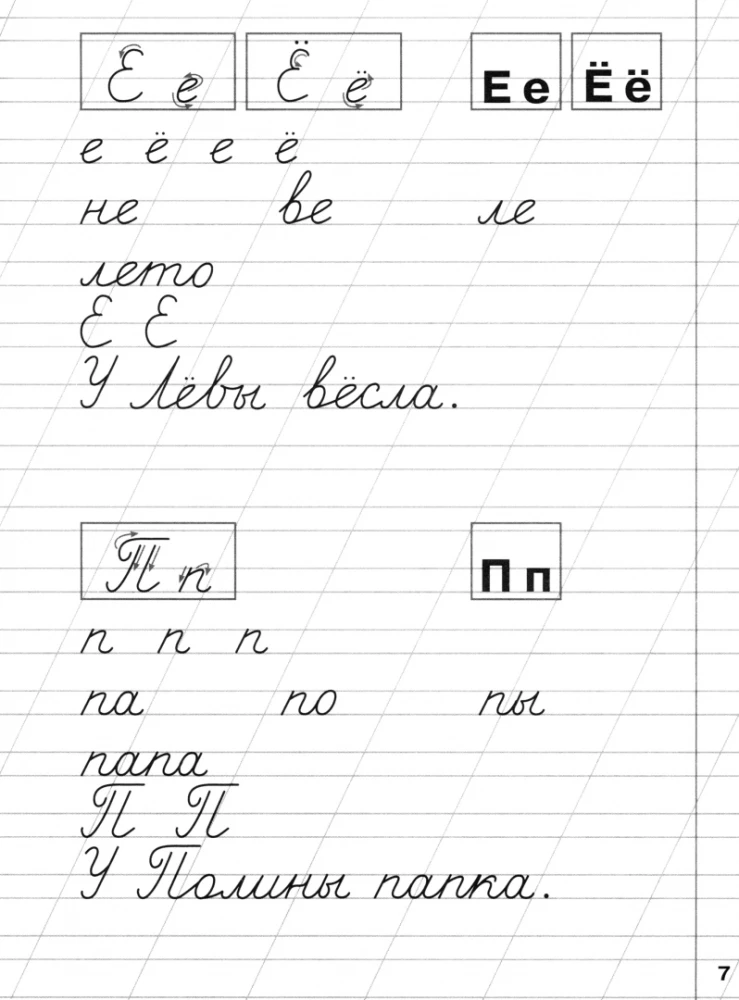 Е е Ё ё Е е Ё ё
е ё е ё
не ве ле
лето
Е Е
У Лёвы вёсла.
П п П п
п п п
па по пы
папа
П П
У Полины папка.
7